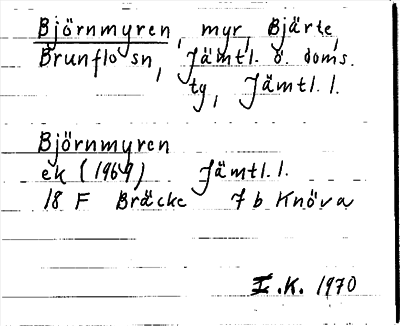 Björnmyren, myr, Bjärte,
Brunflo sn, Jämtl. ö. doms.
ty, Jämtl. l.
Björnmyren
ek (1969) Jämtl. l.
18 F Bräcke 7 b Knöva
I.K. 1970